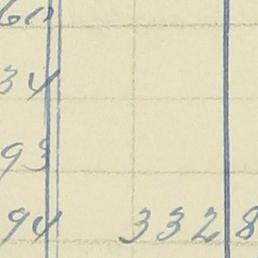 60
34
93
94 332 8